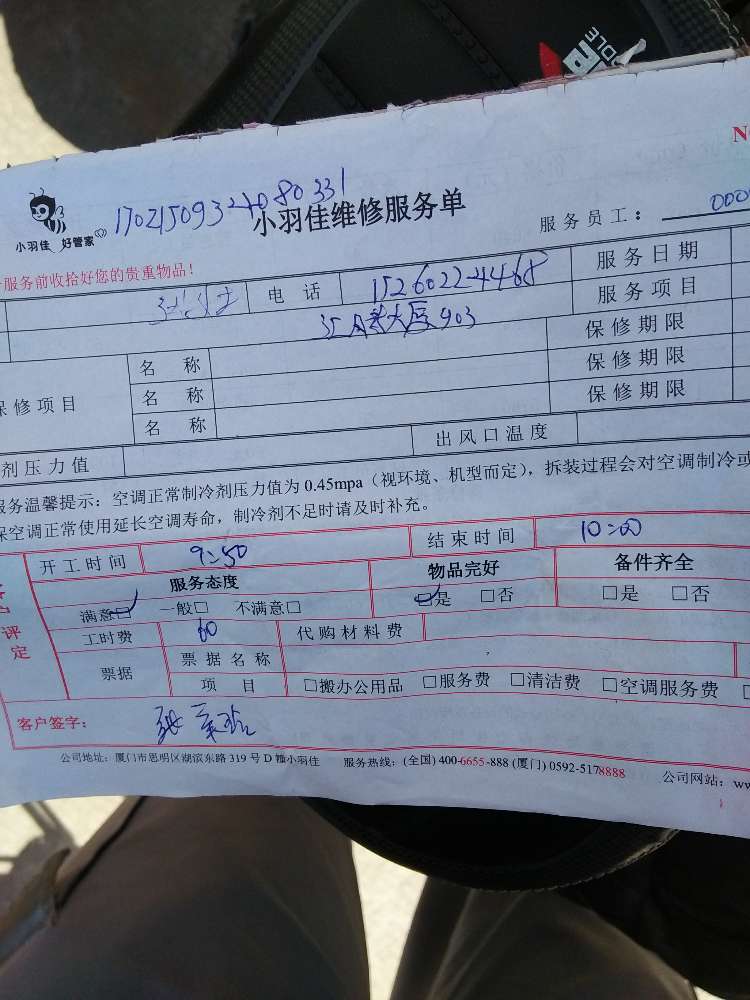 DDLE
N
17021509324080331
小羽佳 好管家
小羽佳维修服务单
服务员工: 000
服务前收拾好您的贵重物品!
电话 15260224468 服务日期
大厦903 服务项目
保修项目 名称 保修期限
名称 保修期限
名称 保修期限
剂压力值 出风口温度
服务温馨提示:空调正常制冷剂压力值为 0.45mpa(视环境、机型而定),拆装过程会对空调制冷或
保空调正常使用延长空调寿命,制冷剂不足时请及时补充。
开工时间 9:50 结束时间 10:00
服务态度 物品完好 备件齐全
满意□ 一般□ 不满意□ □是 □否 □是 □否
评定
工时费 60 代购材料费
票据 票据名称
项目 □搬办公用品 □服务费 □清洁费 □空调服务费
客户签字:
公司地址:厦门市思明区湖滨东路 319 号 D 幢小羽佳 服务热线:(全国) 400-6655-888 (厦门) 0592-5178888 公司网站:ww